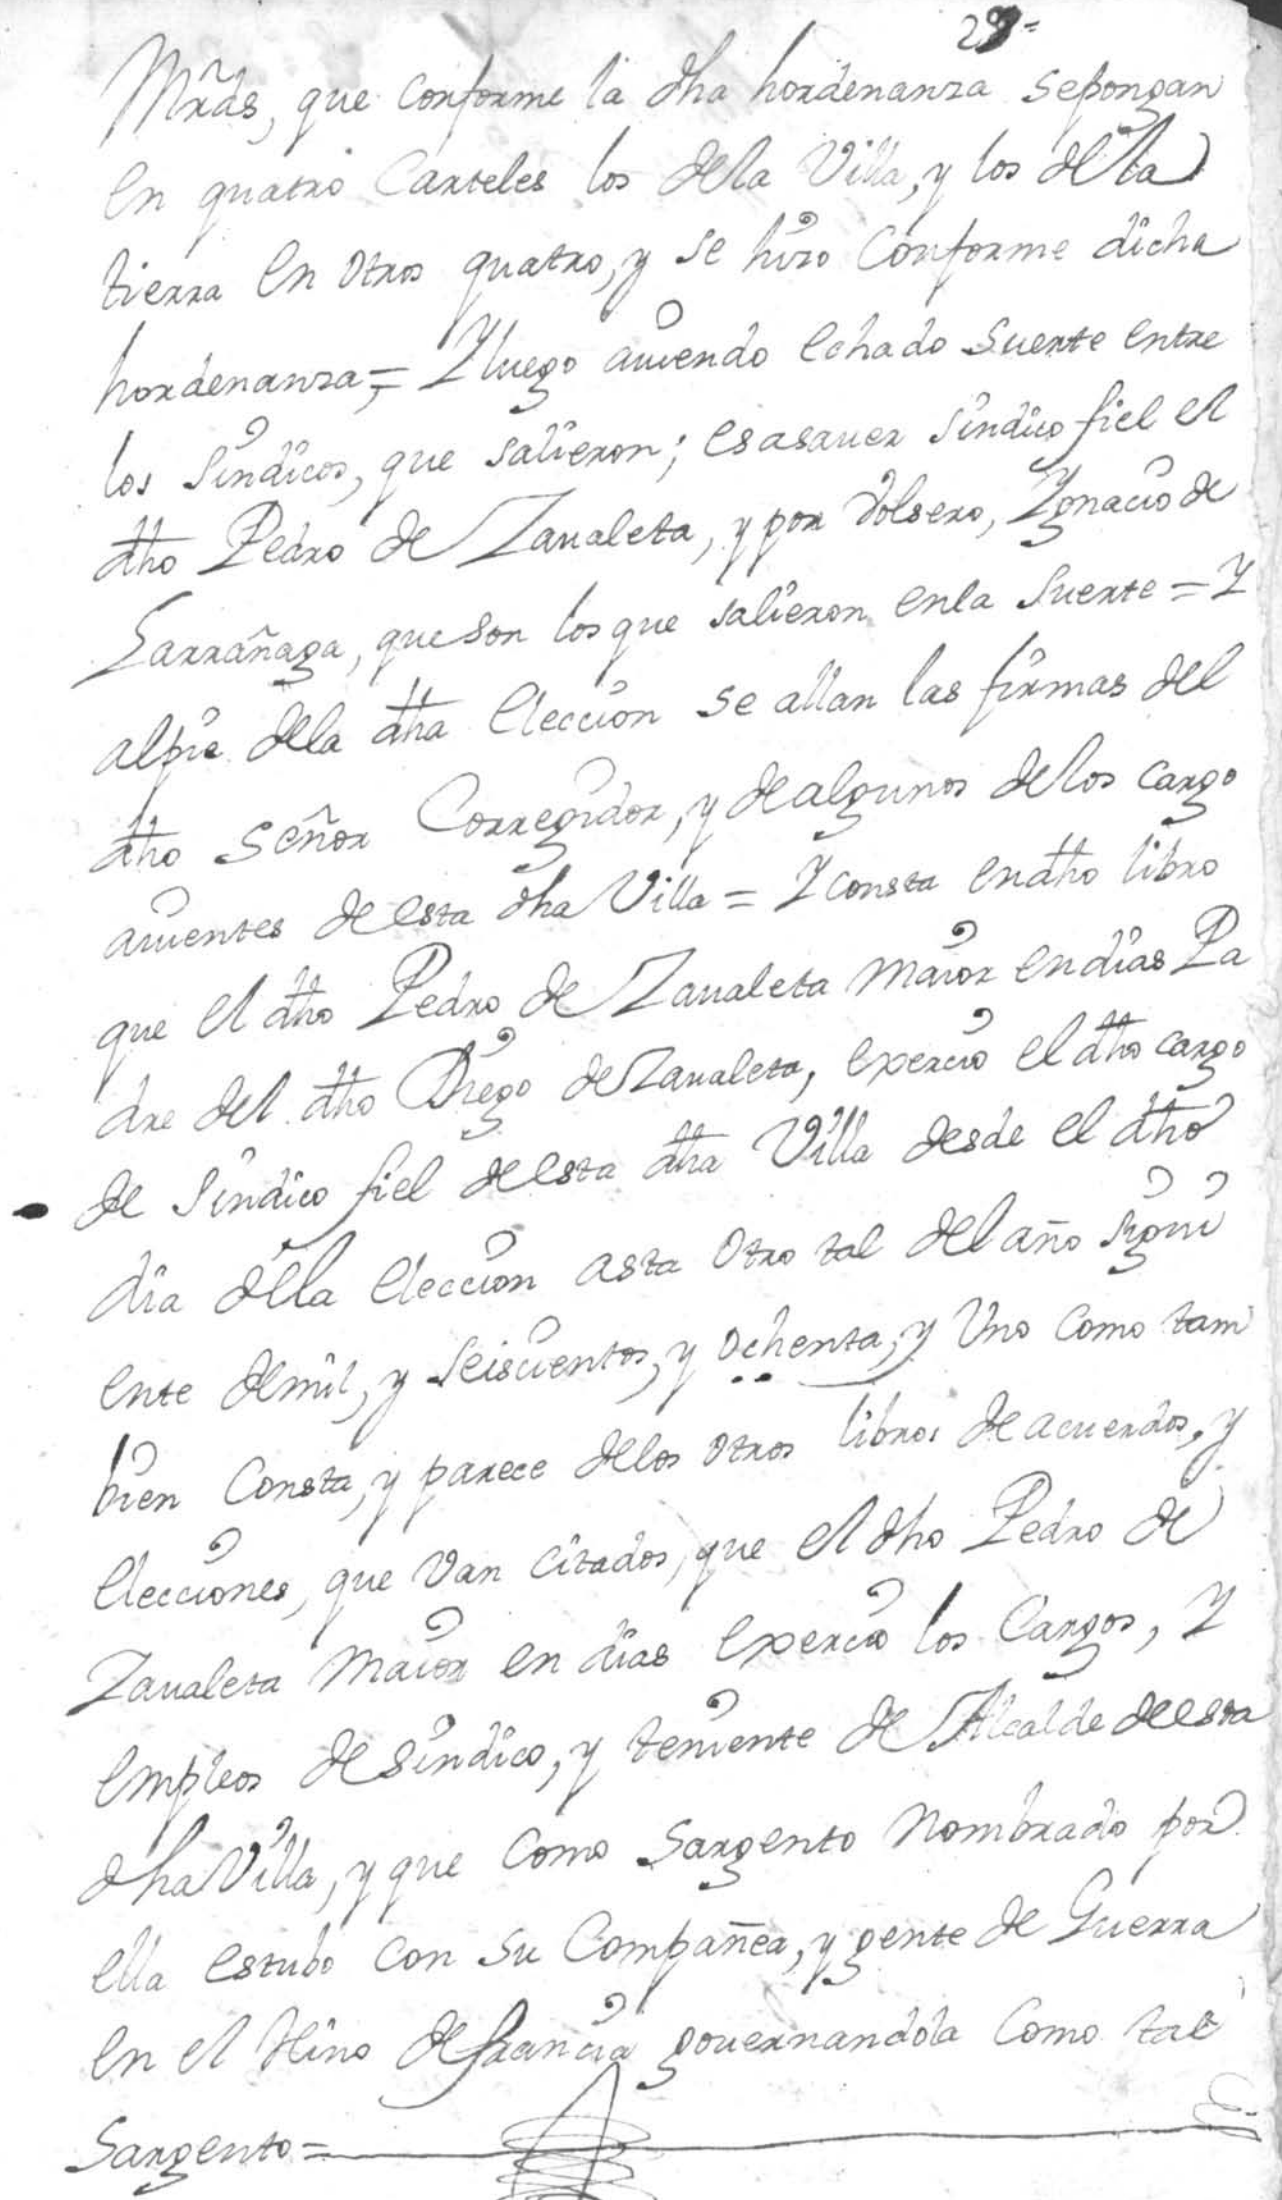 29=
Mrãs, que conforme la dha hordenanza sepongan
en quatro Carteles los dela Villa, y los dela
tierra en otros quatro, y se hizo Conforme dicha
hordenanza;= Yluego auiendo echado Suerte entre
los Sindicos, que salieron; esasauer Sindico fiel el
dho Pedro de Zaualeta, y por Volsero, Ygnacio de
Larrañaga, queson los que salieron enla Suerte = Y
alpie dela dha Eleccion se allan las firmas del
dho Señor Corregidor, y dealgunos delos cargo
auientes de esta dha Villa = Yconsta endho libro
que el dho Pedro de Zaualeta maior endias Pa
dre del dho Diego deZaualeta, exercio el dho cargo
de Sindico fiel de esta dha Villa desde el dho
dia della Eleccion asta otro tal del año sigui
ente demil, y Seiscientos, y ochenta, y Uno como tam
bien Consta, y parece delos otros libros de acuerdos, y
Elecciones, que van citados, que el dho Pedro de
Zaualeta maior en dias exercio los Cargos, Y
empleos desindico, y teniente de Alcalde de esta
dhaVilla, y que como Sargento nombrado por
ella estubo con su Compañea, y gente de Guerra
en el Rño defrancia gouernandola Como tal
Sargento=